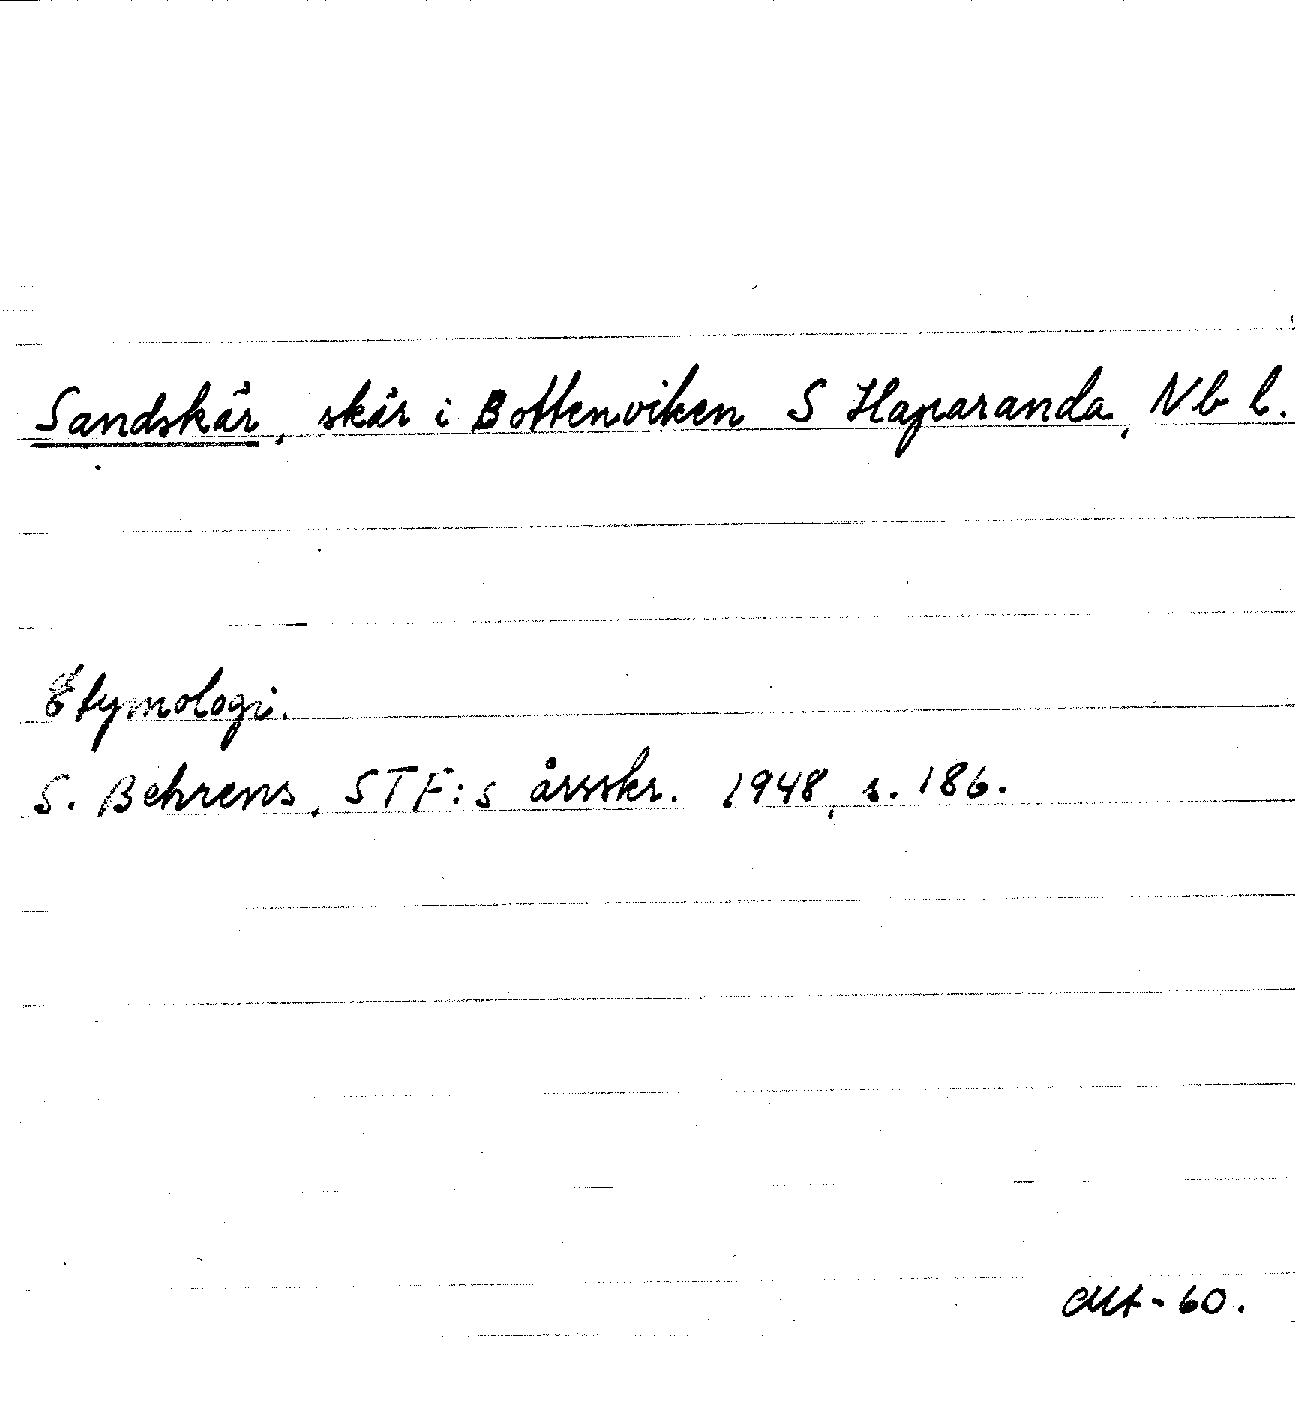 Sandskär, skär i Bottenviken S Haparanda, Nb l.
Etymologi.
S. Behrens, STF:s årsskr. 1948, s. 186.
-60.